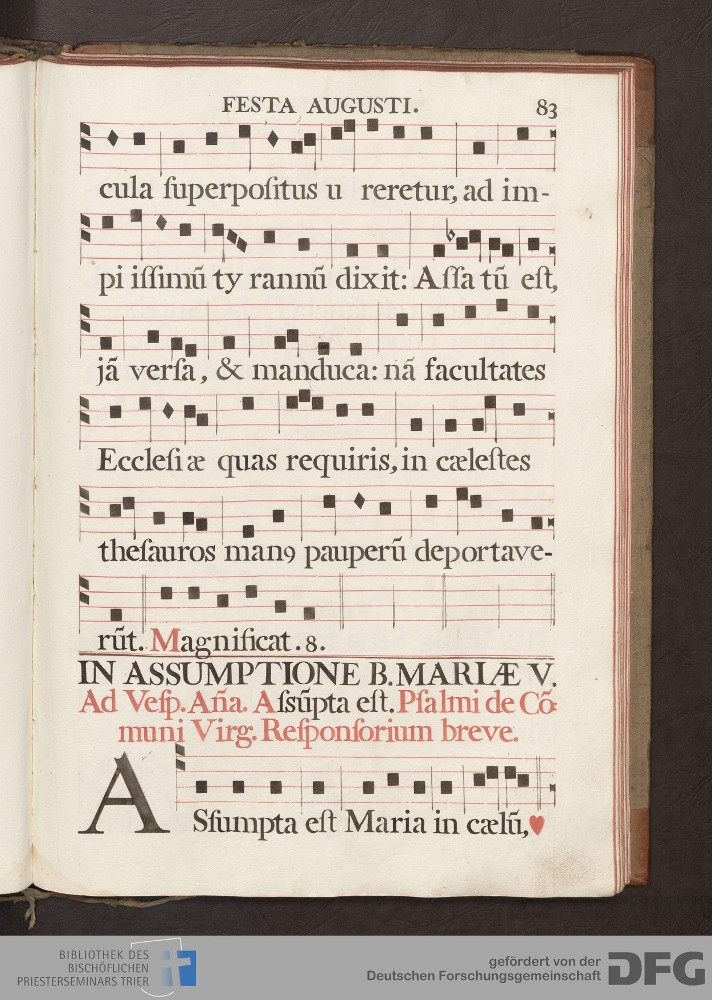 FESTA AUGUSTI. 83
cula ſuperpoſitus u reretur, ad im-
pi iſſimū ty rannū dixit: Aſſa tū eſt,
jā verſa, & manduca: nā facultates
Eccleſi æ quas requiris, in cæleſtes
theſauros manꝯ pauperū deportave-
rūt. Magnificat. 8.
IN ASSUMPTIONE B. MARIÆ V.
Ad Veſp. Aña. Aſsūpta eſt. Pſalmi de Cō-
muni Virg. Reſponſorium breve.
ASſumpta eſt Maria in cælū,
BIBLIOTHEK DES
BISCHÖFLICHEN
PRIESTERSEMINARS TRIER
gefördert von der
Deutschen Forschungsgemeinschaft DFG